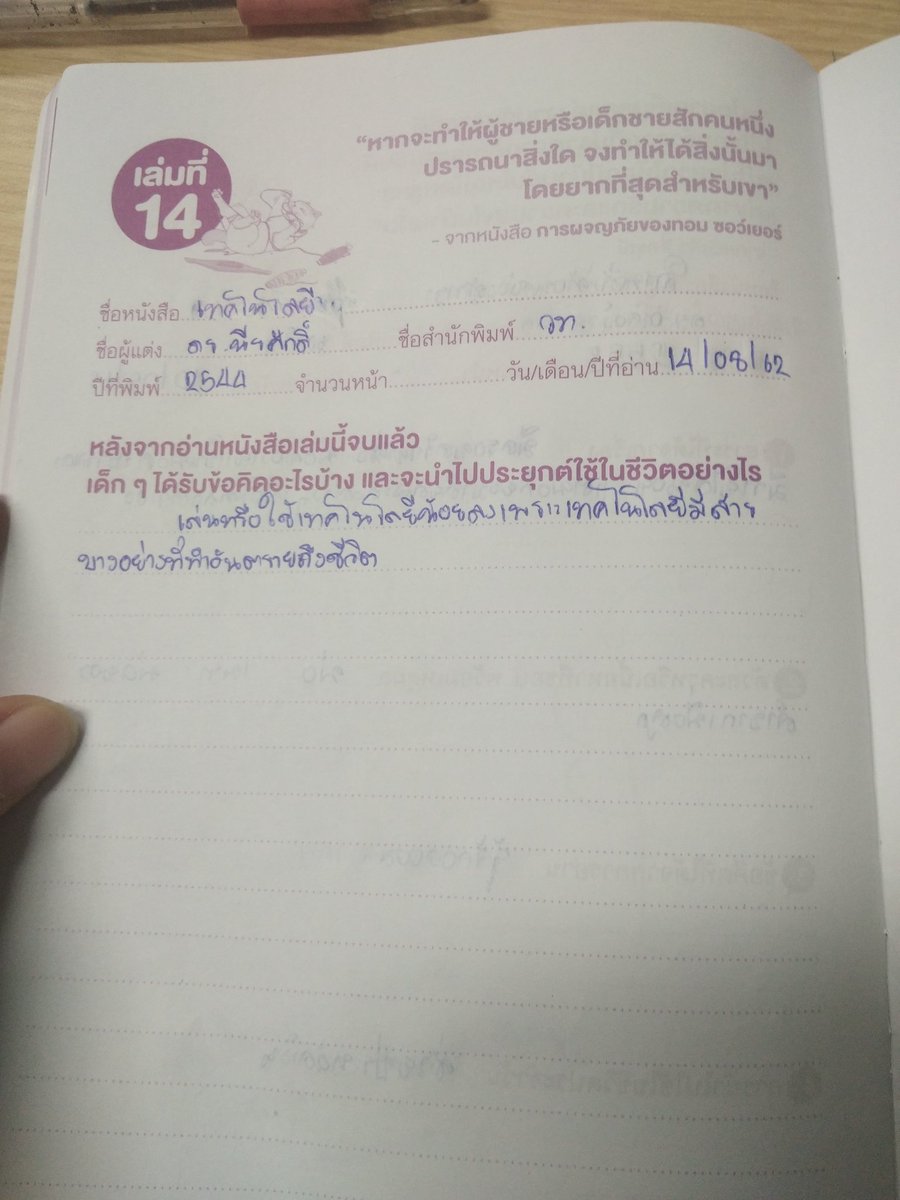 เล่มที่
14
“หากจะทำให้ผู้ชายหรือเด็กชายสักคนหนึ่ง
ปรารถนาสิ่งใด จงทำให้ได้สิ่งนั้นมา
โดยยากที่สุดสำหรับเขา”
- จากหนังสือ การผจญภัยของทอม ซอว์เยอร์
ชื่อหนังสือ เทคโนโลยี
ชื่อผู้แต่ง ดร. ชื่อสำนักพิมพ์ วท.
ปีที่พิมพ์ 2544 จำนวนหน้า วัน/เดือน/ปีที่อ่าน 14/08/62
หลังจากอ่านหนังสือเล่มนี้จบแล้ว
เด็ก ๆ ได้รับข้อคิดอะไรบ้าง และจะนำไปประยุกต์ใช้ในชีวิตอย่างไร
เล่นหรือใช้เทคโนโลยีน้อยลงเพราะเทคโนโลยีมีสาย
บางอย่างที่ทำอันตรายถึงชีวิต